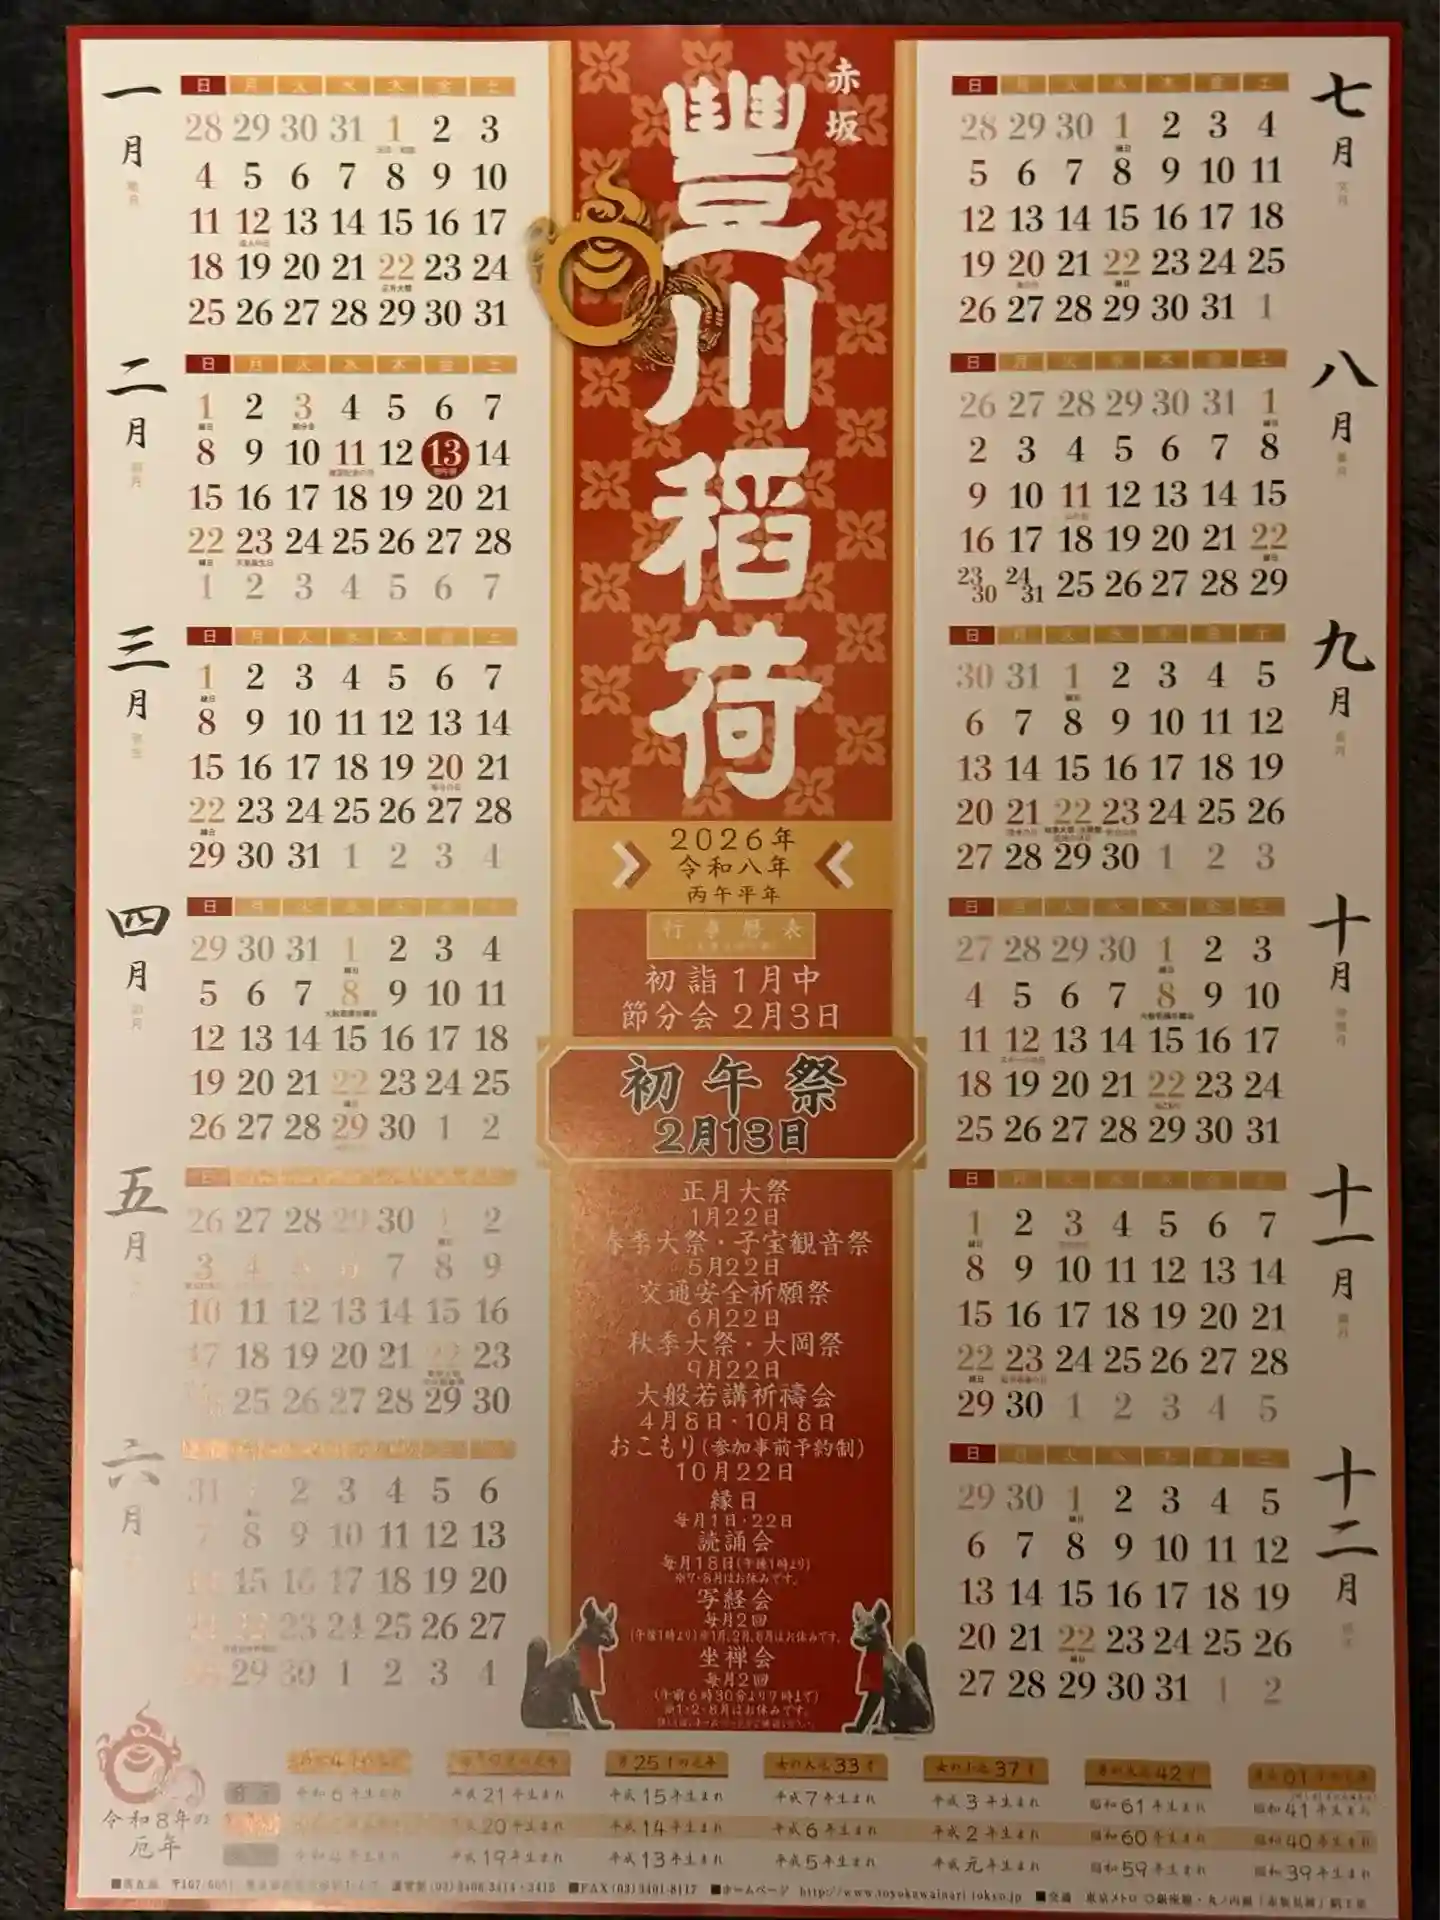 赤坂
豐川稲荷
2026年
令和八年
丙午平年
行事暦表
初詣1月中
節分会2月3日
初午祭
2月13日
正月大祭
1月22日
春季大祭・子宝観音祭
5月22日
交通安全祈願祭
6月22日
秋季大祭・大岡祭
9月22日
大般若講祈禱会
4月8日・10月8日
おこもり(参加事前予約制)
10月22日
縁日
毎月1日・22日
読誦会
毎月18日(午後1時より)
※7・8月はお休みです。
写経会
毎月2回
(午後1時より)※1月、2月、8月はお休みです。
坐禅会
毎月2回
(午前6時30分より7時まで)
※1・2・8月はお休みです。
一月
日 月 火 水 木 金 土
28 29 30 31 1 2 3
4 5 6 7 8 9 10
11 12 13 14 15 16 17
成人の日
18 19 20 21 22 23 24
正月大祭
25 26 27 28 29 30 31
二月
日 月 火 水 木 金 土
1 2 3 4 5 6 7
縁日 節分会
8 9 10 11 12 13 14
建国記念の日 初午祭
15 16 17 18 19 20 21
22 23 24 25 26 27 28
縁日 天皇誕生日
1 2 3 4 5 6 7
三月
日 月 火 水 木 金 土
1 2 3 4 5 6 7
縁日
8 9 10 11 12 13 14
15 16 17 18 19 20 21
春分の日
22 23 24 25 26 27 28
縁日
29 30 31 1 2 3 4
四月
日 月 火 水 木 金 土
29 30 31 1 2 3 4
縁日
5 6 7 8 9 10 11
大般若講祈禱会
12 13 14 15 16 17 18
19 20 21 22 23 24 25
縁日
26 27 28 29 30 1 2
五月
26 27 28 29 30 1 2
縁日
3 4 5 6 7 8 9
10 11 12 13 14 15 16
17 18 19 20 21 22 23
25 26 27 28 29 30
六月
31 2 3 4 5 6
7 8 9 10 11 12 13
14 15 16 17 18 19 20
21 22 23 24 25 26 27
29 30 1 2 3 4
七月
日 月 火 水 木 金 土
28 29 30 1 2 3 4
縁日
5 6 7 8 9 10 11
12 13 14 15 16 17 18
19 20 21 22 23 24 25
海の日 縁日
26 27 28 29 30 31 1
八月
日 月 火 水 木 金 土
26 27 28 29 30 31 1
縁日
2 3 4 5 6 7 8
9 10 11 12 13 14 15
山の日
16 17 18 19 20 21 22
縁日
23/30 24/31 25 26 27 28 29
九月
日 月 火 水 木 金 土
30 31 1 2 3 4 5
縁日
6 7 8 9 10 11 12
13 14 15 16 17 18 19
20 21 22 23 24 25 26
27 28 29 30 1 2 3
十月
日 月 火 水 木 金 土
27 28 29 30 1 2 3
縁日
4 5 6 7 8 9 10
大般若講祈禱会
11 12 13 14 15 16 17
スポーツの日
18 19 20 21 22 23 24
おこもり
25 26 27 28 29 30 31
十一月
日 月 火 水 木 金 土
1 2 3 4 5 6 7
縁日
8 9 10 11 12 13 14
15 16 17 18 19 20 21
22 23 24 25 26 27 28
縁日 勤労感謝の日
29 30 1 2 3 4 5
十二月
日 月 火 水 木 金 土
29 30 1 2 3 4 5
縁日
6 7 8 9 10 11 12
13 14 15 16 17 18 19
20 21 22 23 24 25 26
縁日
27 28 29 30 31 1 2
令和8年の
厄年
男25才の厄年 女の大厄33才 女の小厄37才 男の大厄42才
令和6年生まれ 平成21年生まれ 平成15年生まれ 平成7年生まれ 平成3年生まれ 昭和61年生まれ 昭和41年生まれ
20年生まれ 平成14年生まれ 平成6年生まれ 平成2年生まれ 昭和60年生まれ 昭和40年生まれ
令和4年生まれ 平成19年生まれ 平成13年生まれ 平成5年生まれ 平成元年生まれ 昭和59年生まれ 昭和39年生まれ
■所在地 〒107-0051 (03)3408-3414・3415 ■FAX(03)3401-8117 ■ホームページ http://www.toyokawainari-tokyo.jp ■交通 東京メトロ ◎銀座線・丸ノ内線「赤坂見附」駅下車